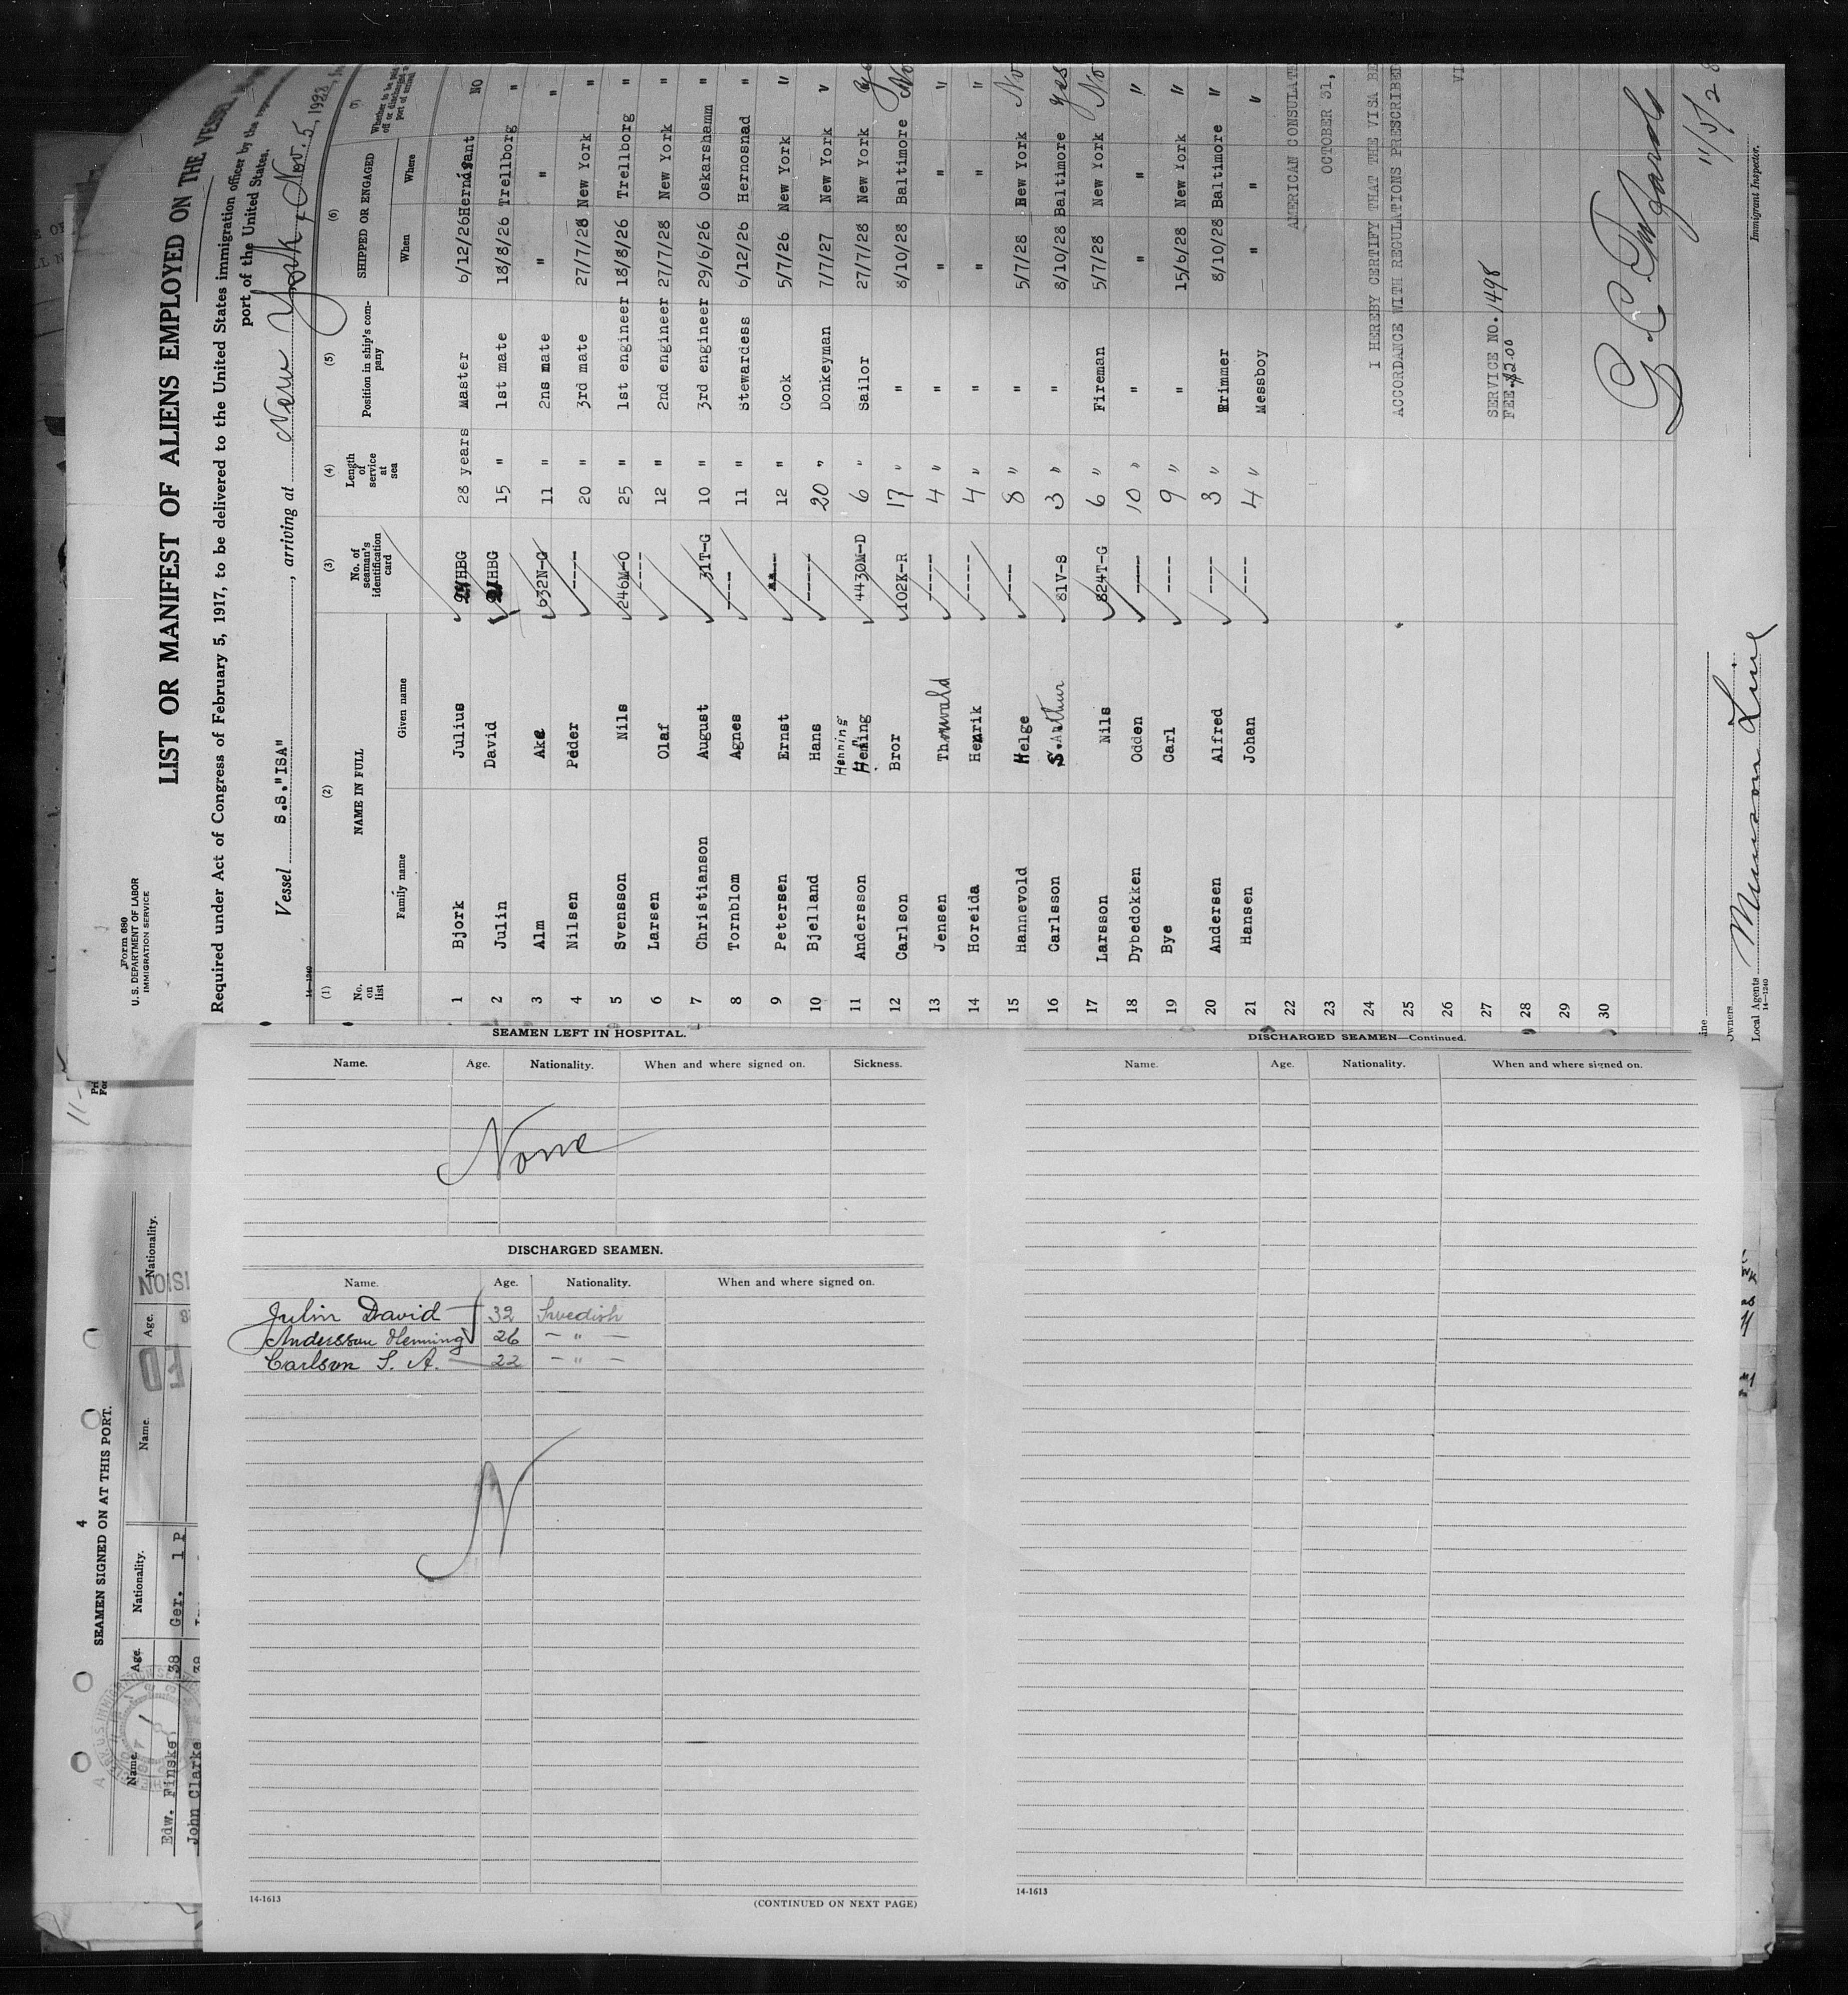 Form 680
U. S. DEPARTMENT OF LABOR
IMMIGRATION SERVICE
LIST OR MANIFEST OF ALIENS EMPLOYED ON THE VESSEL
Required under Act of Congress of February 5, 1917, to be delivered to the United States immigration officer by the
port of the United States.
Vessel S.S."ISA", arriving at New York, Nov. 5, 1928
14-1240
(1) (2) (3) (4) (5) (6) (7)
No. on list NAME IN FULL No. of seaman's identification card Length of service at sea Position in ship's company SHIPPED OR ENGAGED Whether to be paid off or discharged at port of arrival
Family name Given name When Where
1 Bjork Julius HBG 28 years Master 6/12/26 NO
2 Julin David HBG 15 " 1st mate 18/8/26 Trellborg "
3 Alm Ake 632N-G 11 " 2ns mate " " "
4 Nilsen Peder ---- 20 " 3rd mate 27/7/28 New York "
5 Svensson Nils 246M-O 25 " 1st engineer 18/8/26 Trellborg "
6 Larsen Olaf ---- 12 " 2nd engineer 27/7/28 New York "
7 Christianson August 31T-G 10 " 3rd engineer 29/6/26 Oskarshamm "
8 Tornblom Agnes ---- 11 " Stewardess 6/12/26 Hernosnad "
9 Petersen Ernst ---- 12 " Cook 5/7/26 New York "
10 Bjelland Hans ----- 20 " Donkeyman 7/7/27 New York "
11 Andersson Henning Henning 4430M-D 6 " Sailor 27/7/28 New York
12 Carlson Bror 102K-R 17 " " 8/10/28 Baltimore No
13 Jensen Thorvald ----- 4 " " " " "
14 Horeida Henrik ----- 4 " " " " "
15 Hannevold Helge ---- 8 " " 5/7/28 New York No
16 Carlsson S. Arthur 81V-S 3 " " 8/10/28 Baltimore Yes
17 Larsson Nils 824T-G 6 " Fireman 5/7/28 New York No
18 Dybedokken Odden ---- 10 " " " " "
19 Bye Carl ---- 9 " " 15/6/28 New York "
20 Andersen Alfred ---- 3 " Trimmer 8/10/28 Baltimore "
21 Hansen Johan ---- 4 " Messboy " " "
22 AMERICAN CONSULATE
23 OCTOBER 31,
24 I HEREBY CERTIFY THAT THE VISA BE
25 ACCORDANCE WITH REGULATIONS PRESCRIBED
26 VI
27 SERVICE NO. 1498
FEE $2.00
28
29
30
11/5/28
Immigrant Inspector.
Owners
Local Agents Munson Line
14-1240
SEAMEN LEFT IN HOSPITAL.
Name. Age. Nationality. When and where signed on. Sickness.
None
DISCHARGED SEAMEN.
Name. Age. Nationality. When and where signed on.
Julin David 32 Swedish
Andersson Henning 26 — " —
Carlson S. A. 22 — " —
N
14-1613
(CONTINUED ON NEXT PAGE)
DISCHARGED SEAMEN—Continued.
Name. Age. Nationality. When and where signed on.
14-1613
4
SEAMEN SIGNED ON AT THIS PORT.
Name. Age. Nationality. Name. Age. Nationality.
Edw. Finske 38 Ger. 1 P
John Clarke